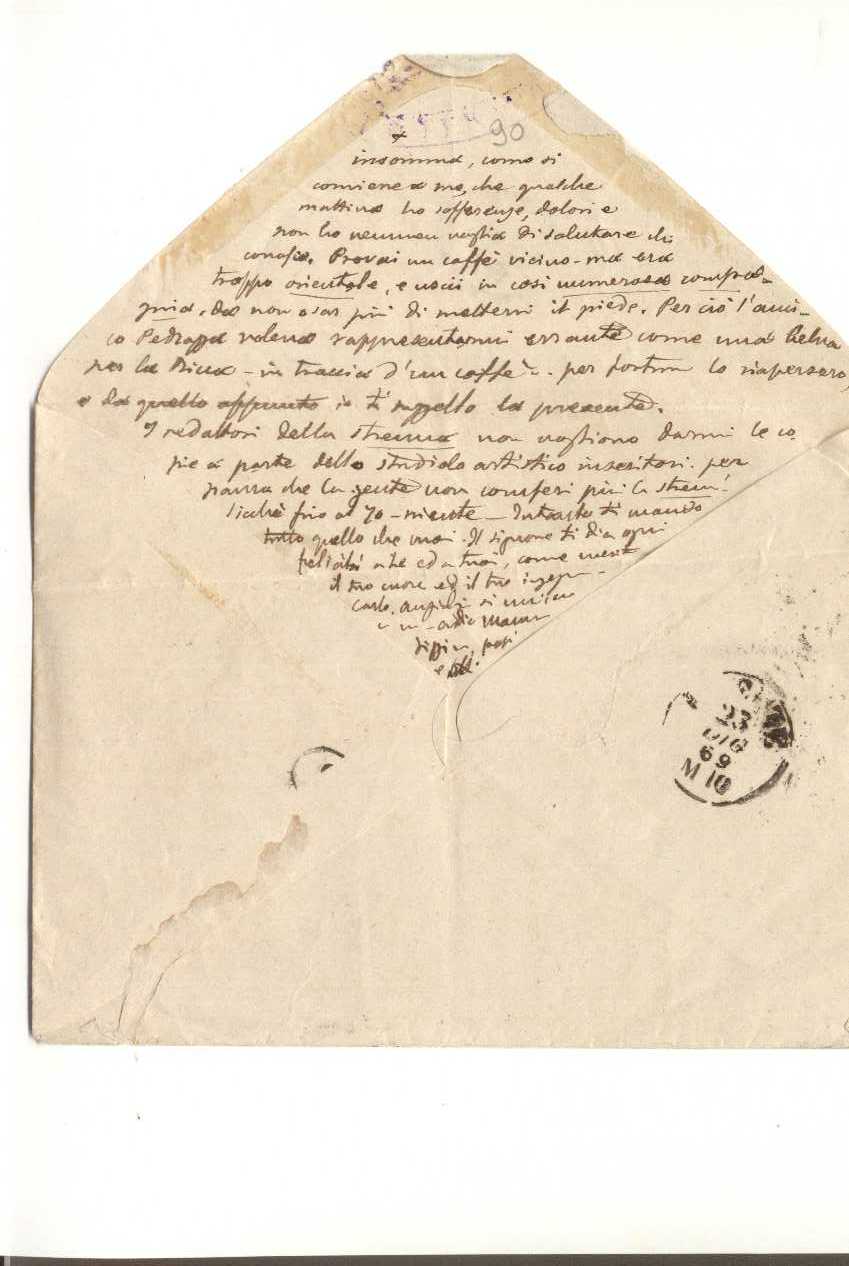 90
insomma, como si
conviene a me, che qualche
mattina ho sofferenze, dolori e
non ho nemmen voglia di salutare chi
conosco. Provai un caffè vicino - ma era
troppo orientale, e uscii in così numerosa compa-
gnia, da non osar più di mettervi il piede. Per ciò l'ami-
co Pedrazza voleva rappresentarmi errante come una belva
per la Riva - in traccia d'un caffè. per fortuna lo riapersero,
e da quello appunto io ti suggello la presente.
I redattori della strenna non vogliono darmi le co
pie a parte dello studiolo artistico inseritovi. per
paura che la gente non comperi più la strenna.
Sicché fino al 70 - niente - Intanto ti mando
tutto quello che vuoi. Il signore ti dia ogni
felicità a te ed a tuoi, come merita
il tuo cuore ed il tuo ingegno.
Carlo, si
23
DIC
69
M 10